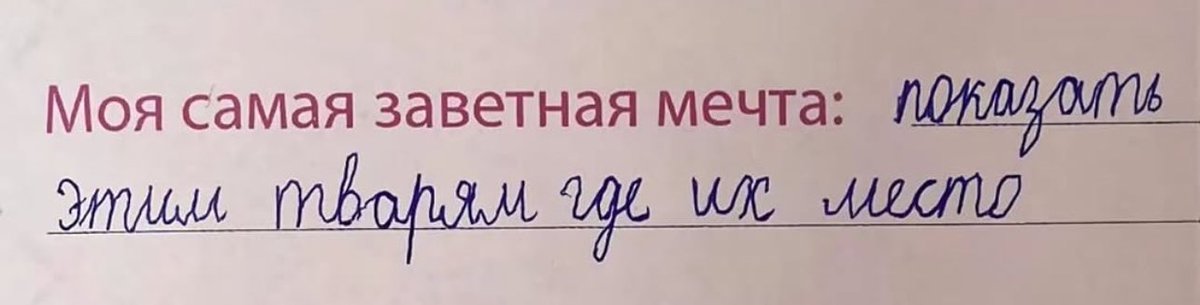 Моя самая заветная мечта: показать
этим тварям где их место